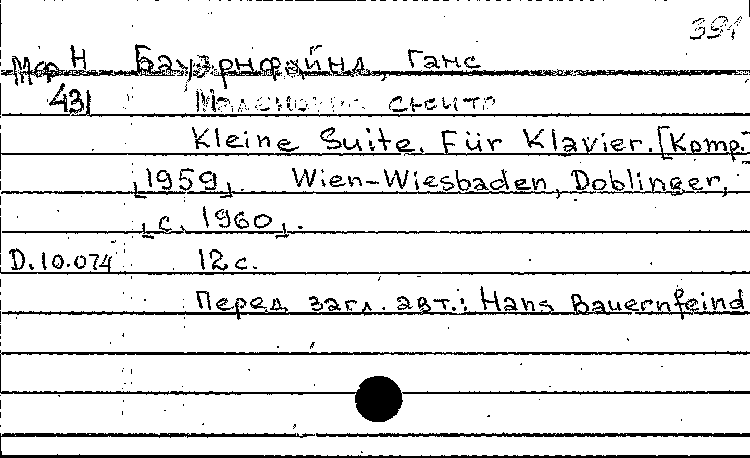 391
Мф Н Бауэрнфайнд, Ганс
431 Маленькая сюита
Kleine Suite. Für Klavier. [Komp.
[1959]. Wien-Wiesbaden, Doblinger,
[c. 1960].
D.10.074 12 с.
Перед загл. авт.: Hans Bauernfeind